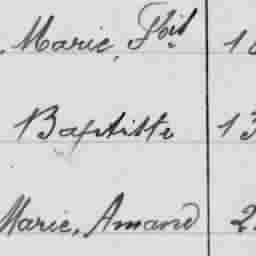 Marie, Flxit 10
Baptiste 13
Marie, Amand 2